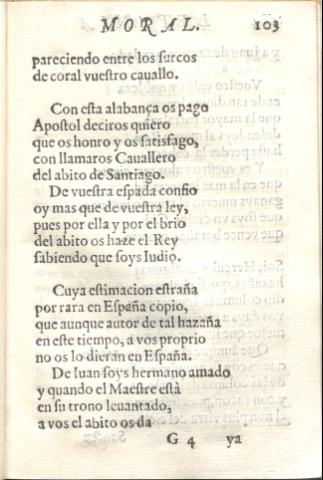 MORAL. 103
pareciendo entre los surcos
de coral vuestro cauallo.
Con esta alabança os pago
Apostol deciros quiero
que os honro y os satisfago,
con llamaros Cauallero
del abito de Santiago.
De vuestra espada confio
oy mas que de vuestra ley,
pues por ella y por el brio
del abito os haze el Rey
sabiendo que soys Iudio.
Cuya estimacion estraña
por rara en España copio,
que aunque autor de tal hazaña
en este tiempo, a vos proprio
no os lo dieran en España.
De Iuan soys hermano amado
y quando el Maestre està
en su trono leuantado,
a vos el abito os da
G 4 ya